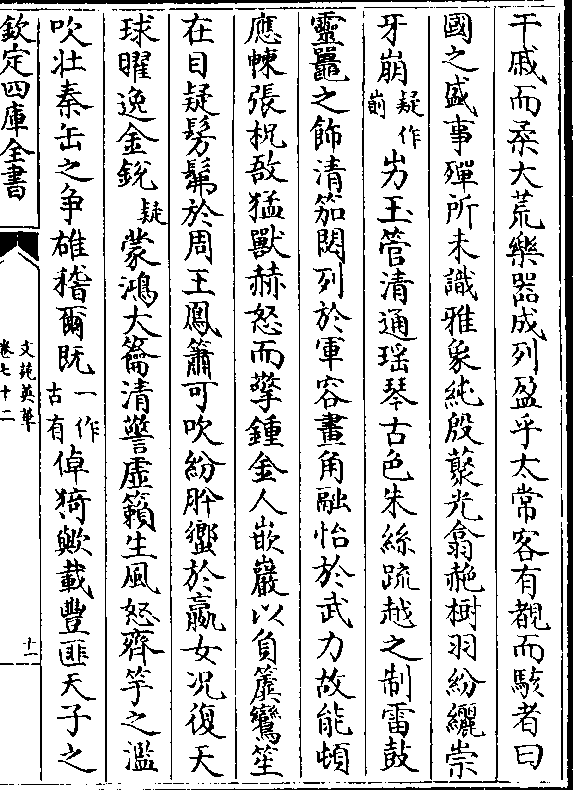 干戚而柔大荒樂器成列盈乎太常客有覩而駭者曰
國之盛事殫所未識雅象純殷藂光翕赩樹羽紛纚崇
牙崩疑作崱屴玉管清通瑶琴古色朱絲疏越之制雷鼓
靈鼉之飾清笳閲列於軍容畫角融怡於武力故能頓
應朄張柷敔猛獸赫怒而擎鍾金人嵌巖以負簴鸞笙
在目疑髣髴於周王鳳簫可吹紛肸蠁於嬴女况復天
球曜逸金鋭疑蒙鴻大籥清謍虛籟生風怒齊竽之濫
吹壮秦缶之爭雄稽爾既一作古有倬猗歟載豐匪天子之
欽定四庫全書
文苑英華
卷七十二
十一